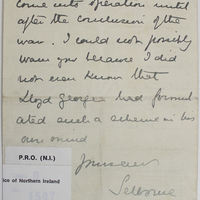 come into operation until
after the conclusion of the
war. I could not possibly
warn you because I did
not even know that
Lloyd George had formul-
ated such a scheme in his
own mind
Selborne
P.R.O. (N.I.)
ice of Northern Ireland